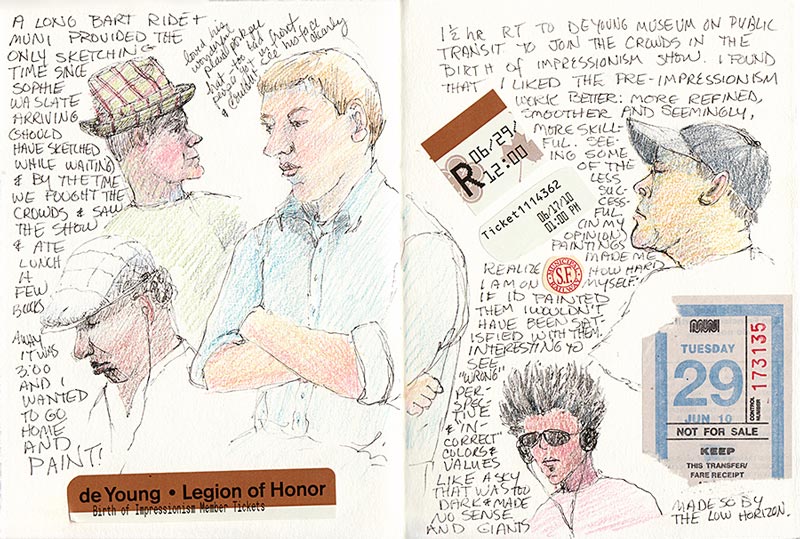 A LONG BART RIDE +
MUNI PROVIDED THE
ONLY SKETCHING
TIME SINCE
SOPHIE
WAS LATE
ARRIVING
(SHOULD
HAVE SKETCHED
WHILE WAITING)
& BY THE TIME
WE FOUGHT THE
CROWDS & SAW
THE SHOW
& ATE
LUNCH
A
FEW
BLOCKS
AWAY
IT WAS
3:00
AND I
WANTED
TO GO
HOME
AND
PAINT!
Loved his
wonderful
plaid porkpie
hat - too bad
passer got in front
& couldn't see his face
clearly
de Young • Legion of Honor
Birth of Impressionism Member Tickets
1½ HR RT TO DEYOUNG MUSEUM ON PUBLIC
TRANSIT TO JOIN THE CROWDS IN THE
BIRTH OF IMPRESSIONISM SHOW. I FOUND
THAT I LIKED THE PRE-IMPRESSIONISM
WORK BETTER: MORE REFINED,
SMOOTHER AND SEEMINGLY,
MORE SKILL-
FUL. SEE-
ING SOME
OF THE
LESS
SUC-
CESS-
FUL
(IN MY
OPINION)
PAINTINGS
MADE ME
REALIZE HOW HARD
I AM ON MYSELF.
IF I'D PAINTED
THEM I WOULDN'T
HAVE BEEN SAT-
ISFIED WITH THEM.
INTERESTING TO
SEE
"WRONG"
PER-
SPEC-
TIVE
& "IN-
CORRECT"
COLORS &
VALUES
LIKE A SKY
THAT WAS TOO
DARK & MADE
NO SENSE
AND GIANTS
MADE SO BY
THE LOW HORIZON.
R 06/29/
12:00
Ticket1114362
06/17/10
01:00 PM
MUNICIPAL
S.F.
RAILWAY
MUNI
TUESDAY
29
JUN 10
CONTROL
NUMBER
173135
NOT FOR SALE
KEEP
THIS TRANSFER/
FARE RECEIPT